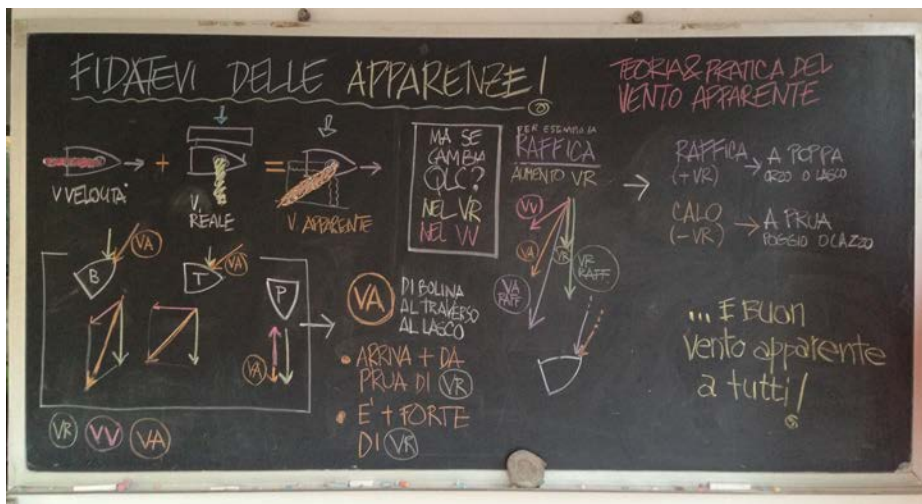 FIDATEVI DELLE APPARENZE!
TEORIA & PRATICA DEL
VENTO APPARENTE
+
=
V VELOCITÀ
V.
REALE
V. APPARENTE
MA SE
CAMBIA
QLC?
NEL VR
NEL VV
PER ESEMPIO LA
RAFFICA
AUMENTO VR
VV
VA
VR
VR
RAFF.
VA
RAFF
RAFFICA
(+VR)
A POPPA
ORZO O LASCO
CALO
(-VR)
A PRUA
POGGIO O CAZZO
B
VA
T
VA
P
VA
VA
DI BOLINA
AL TRAVERSO
AL LASCO
• ARRIVA + DA
PRUA DI VR
• E' + FORTE
DI VR
VR VV VA
... E BUON
vento apparente
a tutti!